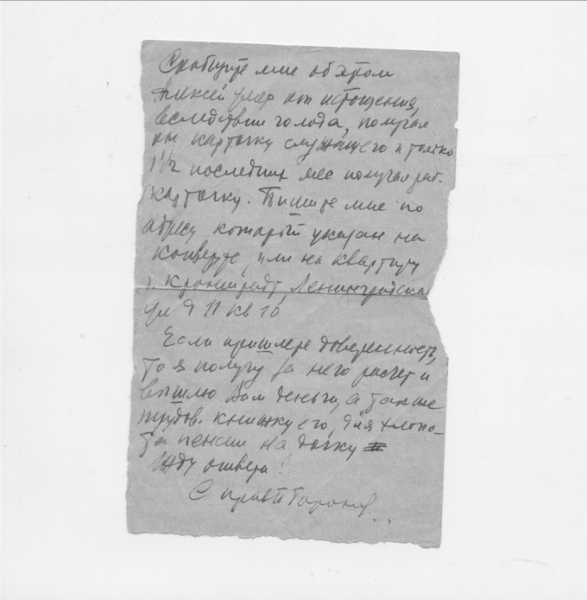 Сообщите мне об этом
Алексей умер от истощения,
вследствии голода, получал
он карточку служащего и только
1 1/2 последних мес получал раб.
карточку. Пишите мне по
адресу который указан на
конверте, или на квартиру
г. Кронштадт, Ленинградская
ул д 11 кв 10
Если пришлете доверенность,
то я получу за него расчет и
вышлю Вам деньги, а также
трудов. книжку его, для хлопо-
т пенсии на дочку
Жду ответа!
С прив.